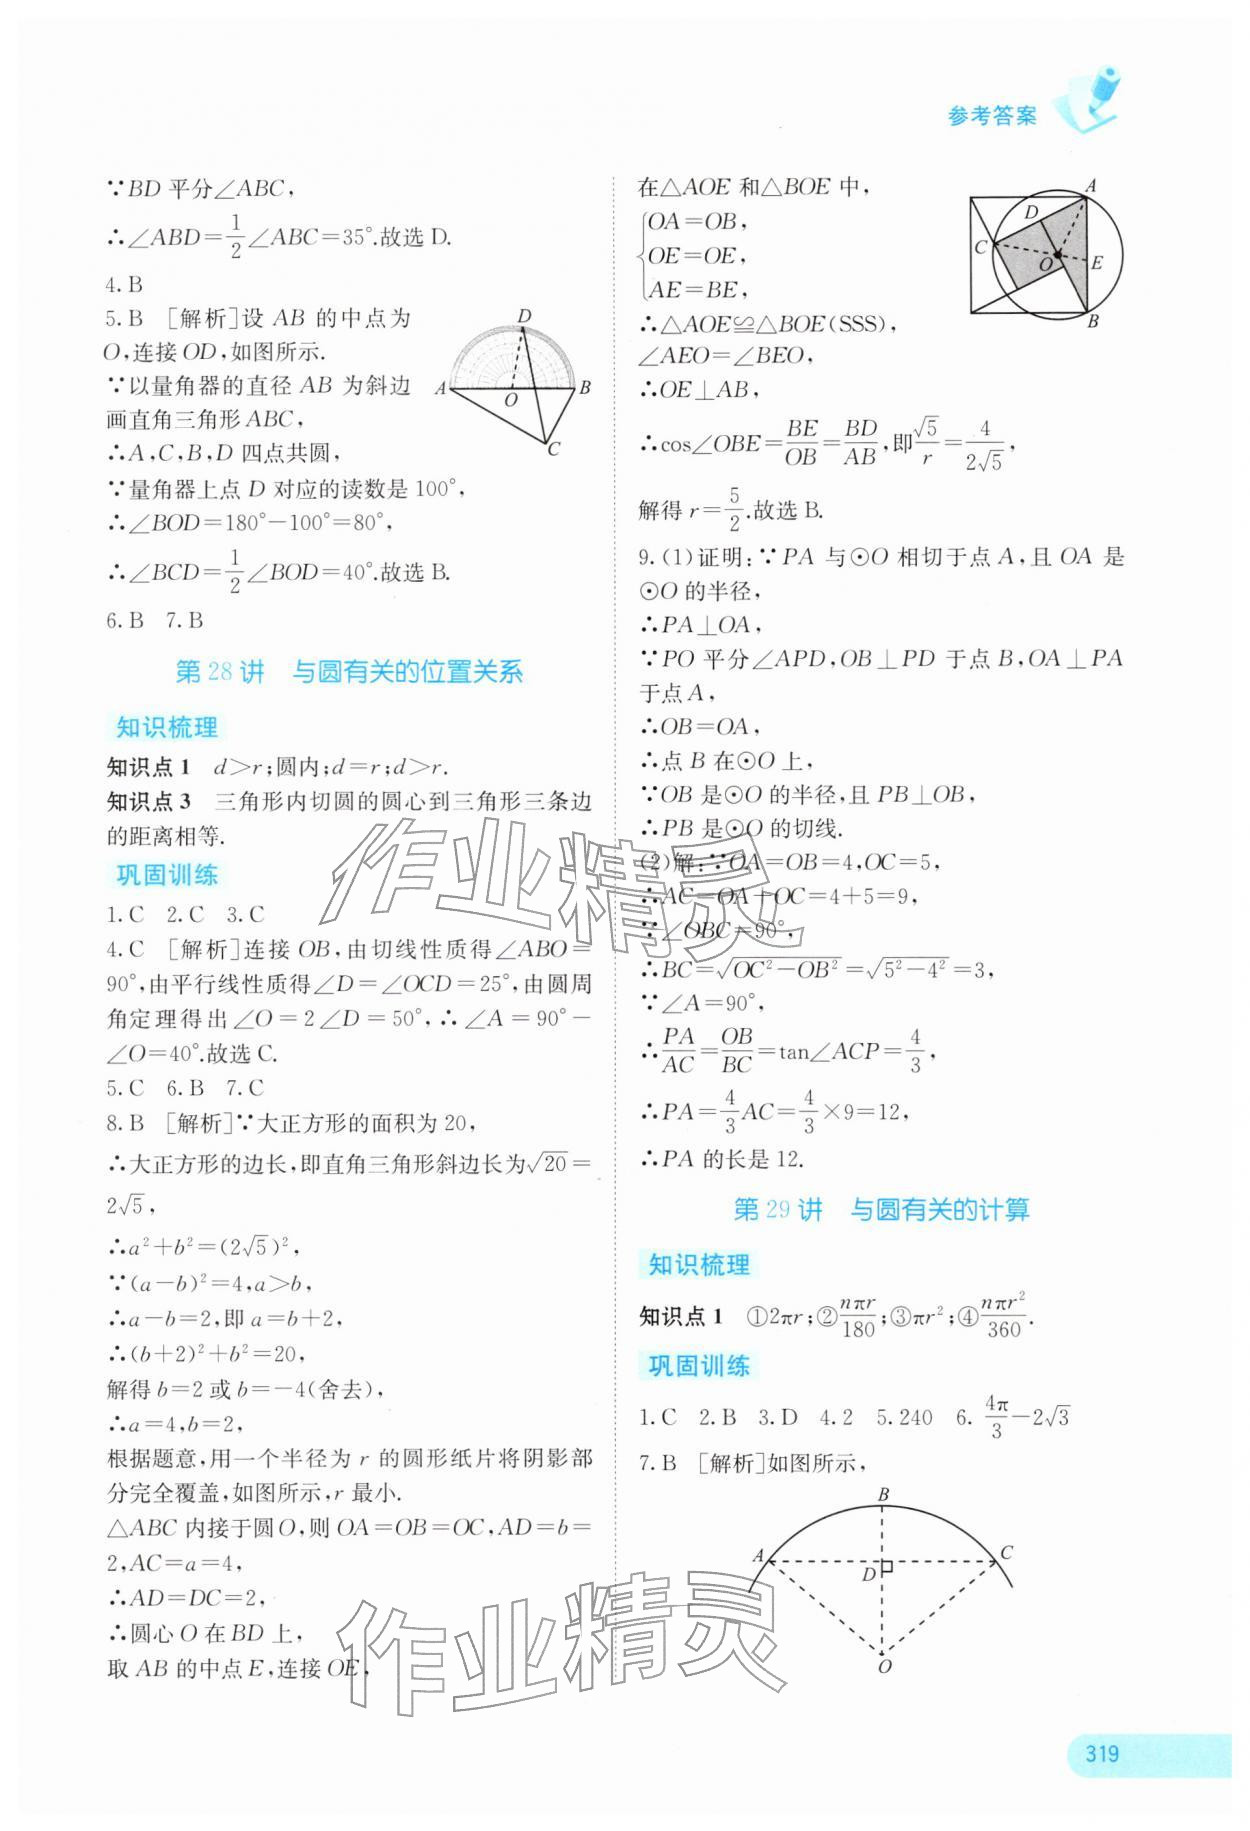 参考答案
∵BD 平分∠ABC,
∴∠ABD=1/2∠ABC=35°.故选 D.
4.B
5.B [解析]设 AB 的中点为
O,连接 OD,如图所示.
∵以量角器的直径 AB 为斜边
画直角三角形 ABC,
∴A,C,B,D 四点共圆,
∵量角器上点 D 对应的读数是 100°,
∴∠BOD=180°-100°=80°,
∴∠BCD=1/2∠BOD=40°.故选 B.
6.B 7.B
D
A
O
B
C
第 28 讲 与圆有关的位置关系
知识梳理
知识点 1 d>r;圆内;d=r;d>r.
知识点 3 三角形内切圆的圆心到三角形三条边
的距离相等.
巩固训练
1.C 2.C 3.C
4.C [解析]连接 OB,由切线性质得∠ABO=
90°,由平行线性质得∠D=∠OCD=25°,由圆周
角定理得出∠O=2∠D=50°,∴∠A=90°-
∠O=40°.故选 C.
5.C 6.B 7.C
8.B [解析]∵大正方形的面积为 20,
∴大正方形的边长,即直角三角形斜边长为√20=
2√5,
∴a²+b²=(2√5)²,
∵(a-b)²=4,a>b,
∴a-b=2,即 a=b+2,
∴(b+2)²+b²=20,
解得 b=2 或 b=-4(舍去),
∴a=4,b=2,
根据题意,用一个半径为 r 的圆形纸片将阴影部
分完全覆盖,如图所示,r 最小.
△ABC 内接于圆 O,则 OA=OB=OC,AD=b=
2,AC=a=4,
∴AD=DC=2,
∴圆心 O 在 BD 上,
取 AB 的中点 E,连接 OE,
在△AOE 和△BOE 中,
OA=OB,
OE=OE,
AE=BE,
∴△AOE≌△BOE(SSS),
∠AEO=∠BEO,
∴OE⊥AB,
∴cos∠OBE=BE/OB=BD/AB,即√5/r=4/2√5,
解得 r=5/2.故选 B.
A
D
C
O
E
B
9.(1)证明:∵PA 与⊙O 相切于点 A,且 OA 是
⊙O 的半径,
∴PA⊥OA,
∵PO 平分∠APD,OB⊥PD 于点 B,OA⊥PA
于点 A,
∴OB=OA,
∴点 B 在⊙O 上,
∵OB 是⊙O 的半径,且 PB⊥OB,
∴PB 是⊙O 的切线.
(2)解:∵OA=OB=4,OC=5,
∴AC=OA+OC=4+5=9,
∵∠OBC=90°,
∴BC=√OC²-OB²=√5²-4²=3,
∵∠A=90°,
∴PA/AC=OB/BC=tan∠ACP=4/3,
∴PA=4/3AC=4/3×9=12,
∴PA 的长是 12.
第 29 讲 与圆有关的计算
知识梳理
知识点 1 ①2πr;②nπr/180;③πr²;④nπr²/360.
巩固训练
1.C 2.B 3.D 4.2 5.240 6.4π/3-2√3
7.B [解析]如图所示,
B
A
C
D
O
作业精灵
作业精灵
319